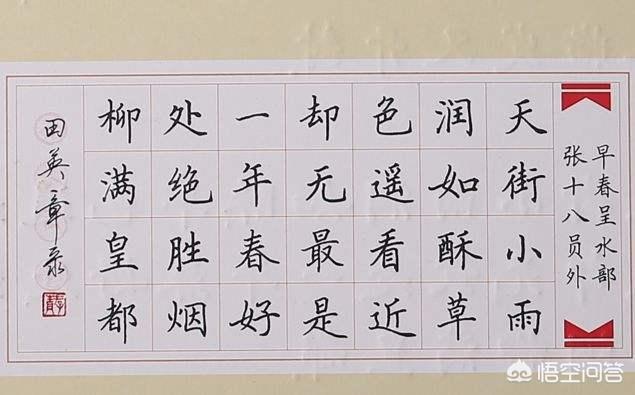 早春呈水部
张十八员外
天街小雨
润如酥草
色遥看近
却无最是
一年春好
处绝胜烟
柳满皇都
田英章录
悟空问答